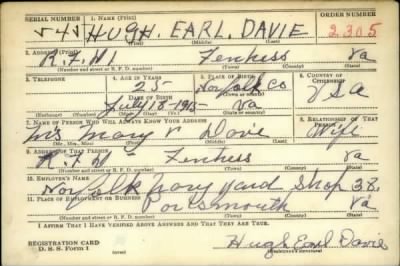 SERIAL NUMBER 1. NAME (Print) ORDER NUMBER
HUGH. EARL. DAVIE 2305
(First) (Middle) (Last)
2. ADDRESS (Print)
R.F.D 1 Fentress Va
(Number and street or R. F. D. number) (Town) (County) (State)
3. TELEPHONE 4. AGE IN YEARS 5. PLACE OF BIRTH 6. COUNTRY OF CITIZENSHIP
25 Norfolk Co
DATE OF BIRTH (Town or county)
July 18-1915 Va USA
(Exchange) (No.) (Mo.) (Day) (Yr.) (State or country)
7. NAME OF PERSON WHO WILL ALWAYS KNOW YOUR ADDRESS 8. RELATIONSHIP OF THAT PERSON
Mrs Mary V Davie Wife
(Mr., Mrs., Miss) (First) (Middle) (Last)
9. ADDRESS OF THAT PERSON
R.F.D Fentress Va
(Number and street or R. F. D. number) (Town) (County) (State)
10. EMPLOYER'S NAME
Norfolk Navy Yard Shop 38,
11. PLACE OF EMPLOYMENT OR BUSINESS
Portsmouth Va
(Number and street or R. F. D. number) (Town) (County) (State)
I AFFIRM THAT I HAVE VERIFIED ABOVE ANSWERS AND THAT THEY ARE TRUE.
REGISTRATION CARD
D. S. S. Form 1
Hugh Earl Davie